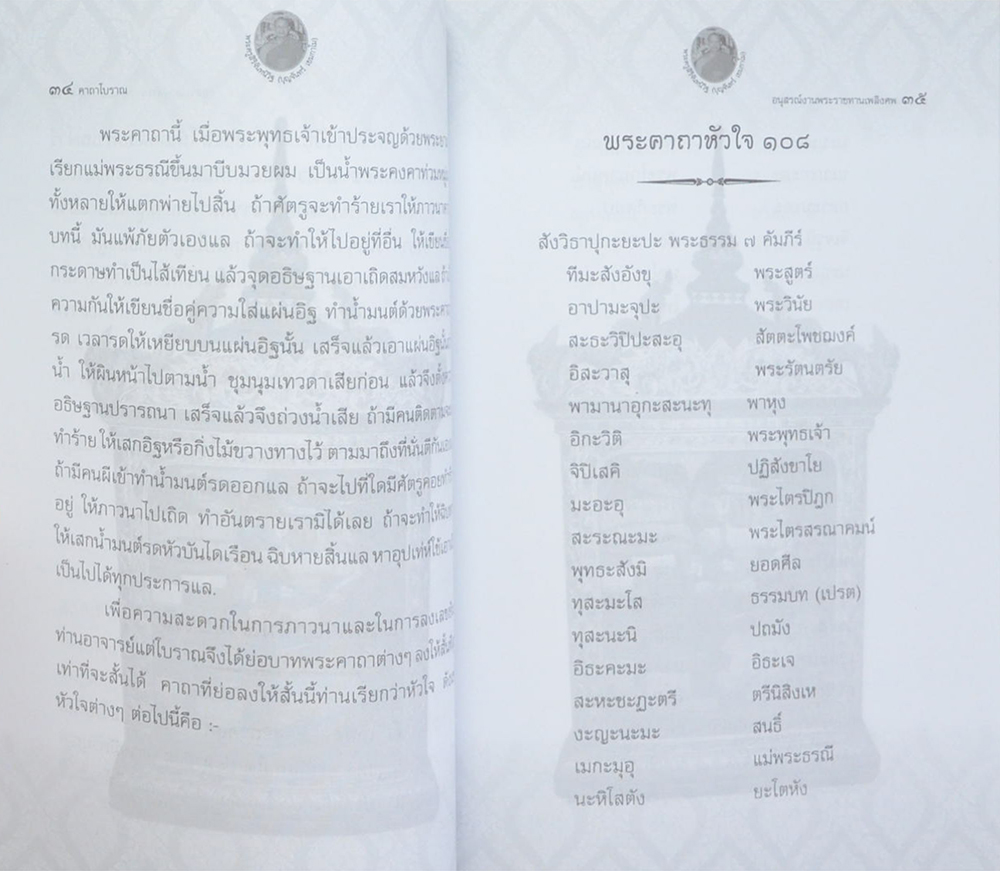 ๓๔ คาถาโบราณ
พระคาถานี้ เมื่อพระพุทธเจ้าเข้าประจญด้วย
เรียกแม่พระธรณีขึ้นมาบีบมวยผม เป็นน้ำพระคงคา
ทั้งหลายให้แตกพ่ายไปสิ้น ถ้าศัตรูจะทำร้ายเราให้ภาวนา
บทนี้ มันแพ้ภัยตัวเองแล ถ้าจะทำให้ไปอยู่ที่อื่น
กระดาษทำเป็นไส้เทียน แล้วจุดอธิษฐานเอาเถิดสมหวังแล
ความกันให้เขียนชื่อคู่ความใส่แผ่นอิฐ ทำน้ำมนต์ด้วย
รด เวลารดให้เหยียบบนแผ่นอิฐนั้น เสร็จแล้วเอาแผ่นอิฐ
น้ำ ให้ผินหน้าไปตามน้ำ ชุมนุมเทวดาเสียก่อน แล้วจึง
อธิษฐานปรารถนา เสร็จแล้วจึงถ่วงน้ำเสีย ถ้ามีคนติดตาม
ทำร้าย ให้เสกอิฐหรือกิ่งไม้ขวางทางไว้ ตามมาถึงที่นั่นตีกัน
ถ้ามีคนผีเข้าทำน้ำมนต์รดออกแล ถ้าจะไปที่ใดมีศัตรูคอย
อยู่ ให้ภาวนาไปเถิด ทำอันตรายเรามิได้เลย ถ้าจะทำให้
ให้เสกน้ำมนต์รดหัวบันไดเรือน ฉิบหายสิ้นแล หาอุปเท่ห์
เป็นไปได้ทุกประการแล.
เพื่อความสะดวกในการภาวนาและในการ
ท่านอาจารย์แต่โบราณจึงได้ย่อบาทพระคาถาต่างๆ ลงให้
เท่าที่จะสั้นได้ คาถาที่ย่อลงให้สั้นนี้ท่านเรียกว่าหัวใจ
หัวใจต่างๆ ต่อไปนี้คือ :-
อนุสรณ์งานพระราชทานเพลิงศพ ๓๕
พระคาถาหัวใจ ๑๐๘
สังวิธาปุกะยะปะ พระธรรม ๗ คัมภีร์
ทีมะสังอังขุ พระสูตร์
อาปามะจุปะ พระวินัย
สะธะวิปิปะสะอุ สัตตะโพชฌงค์
อิสะวาสุ พระรัตนตรัย
พามานาอุกะสะนะทุ พาหุง
อิกะวิติ พระพุทธเจ้า
จิปิเสคิ ปฏิสังขาโย
มะอะอุ พระไตรปิฎก
สะระณะมะ พระไตรสรณาคมน์
พุทธะสังมิ ยอดศีล
ทุสะมะโส ธรรมบท (เปรต)
ทุสะนะนิ ปถมัง
อิธะคะมะ อิธะเจ
สะหะชะฏะตรี ตรีนิสิงเห
งะญะนะมะ สนธิ์
เมกะมุอุ แม่พระธรณี
นะหิโสตัง ยะโตหัง